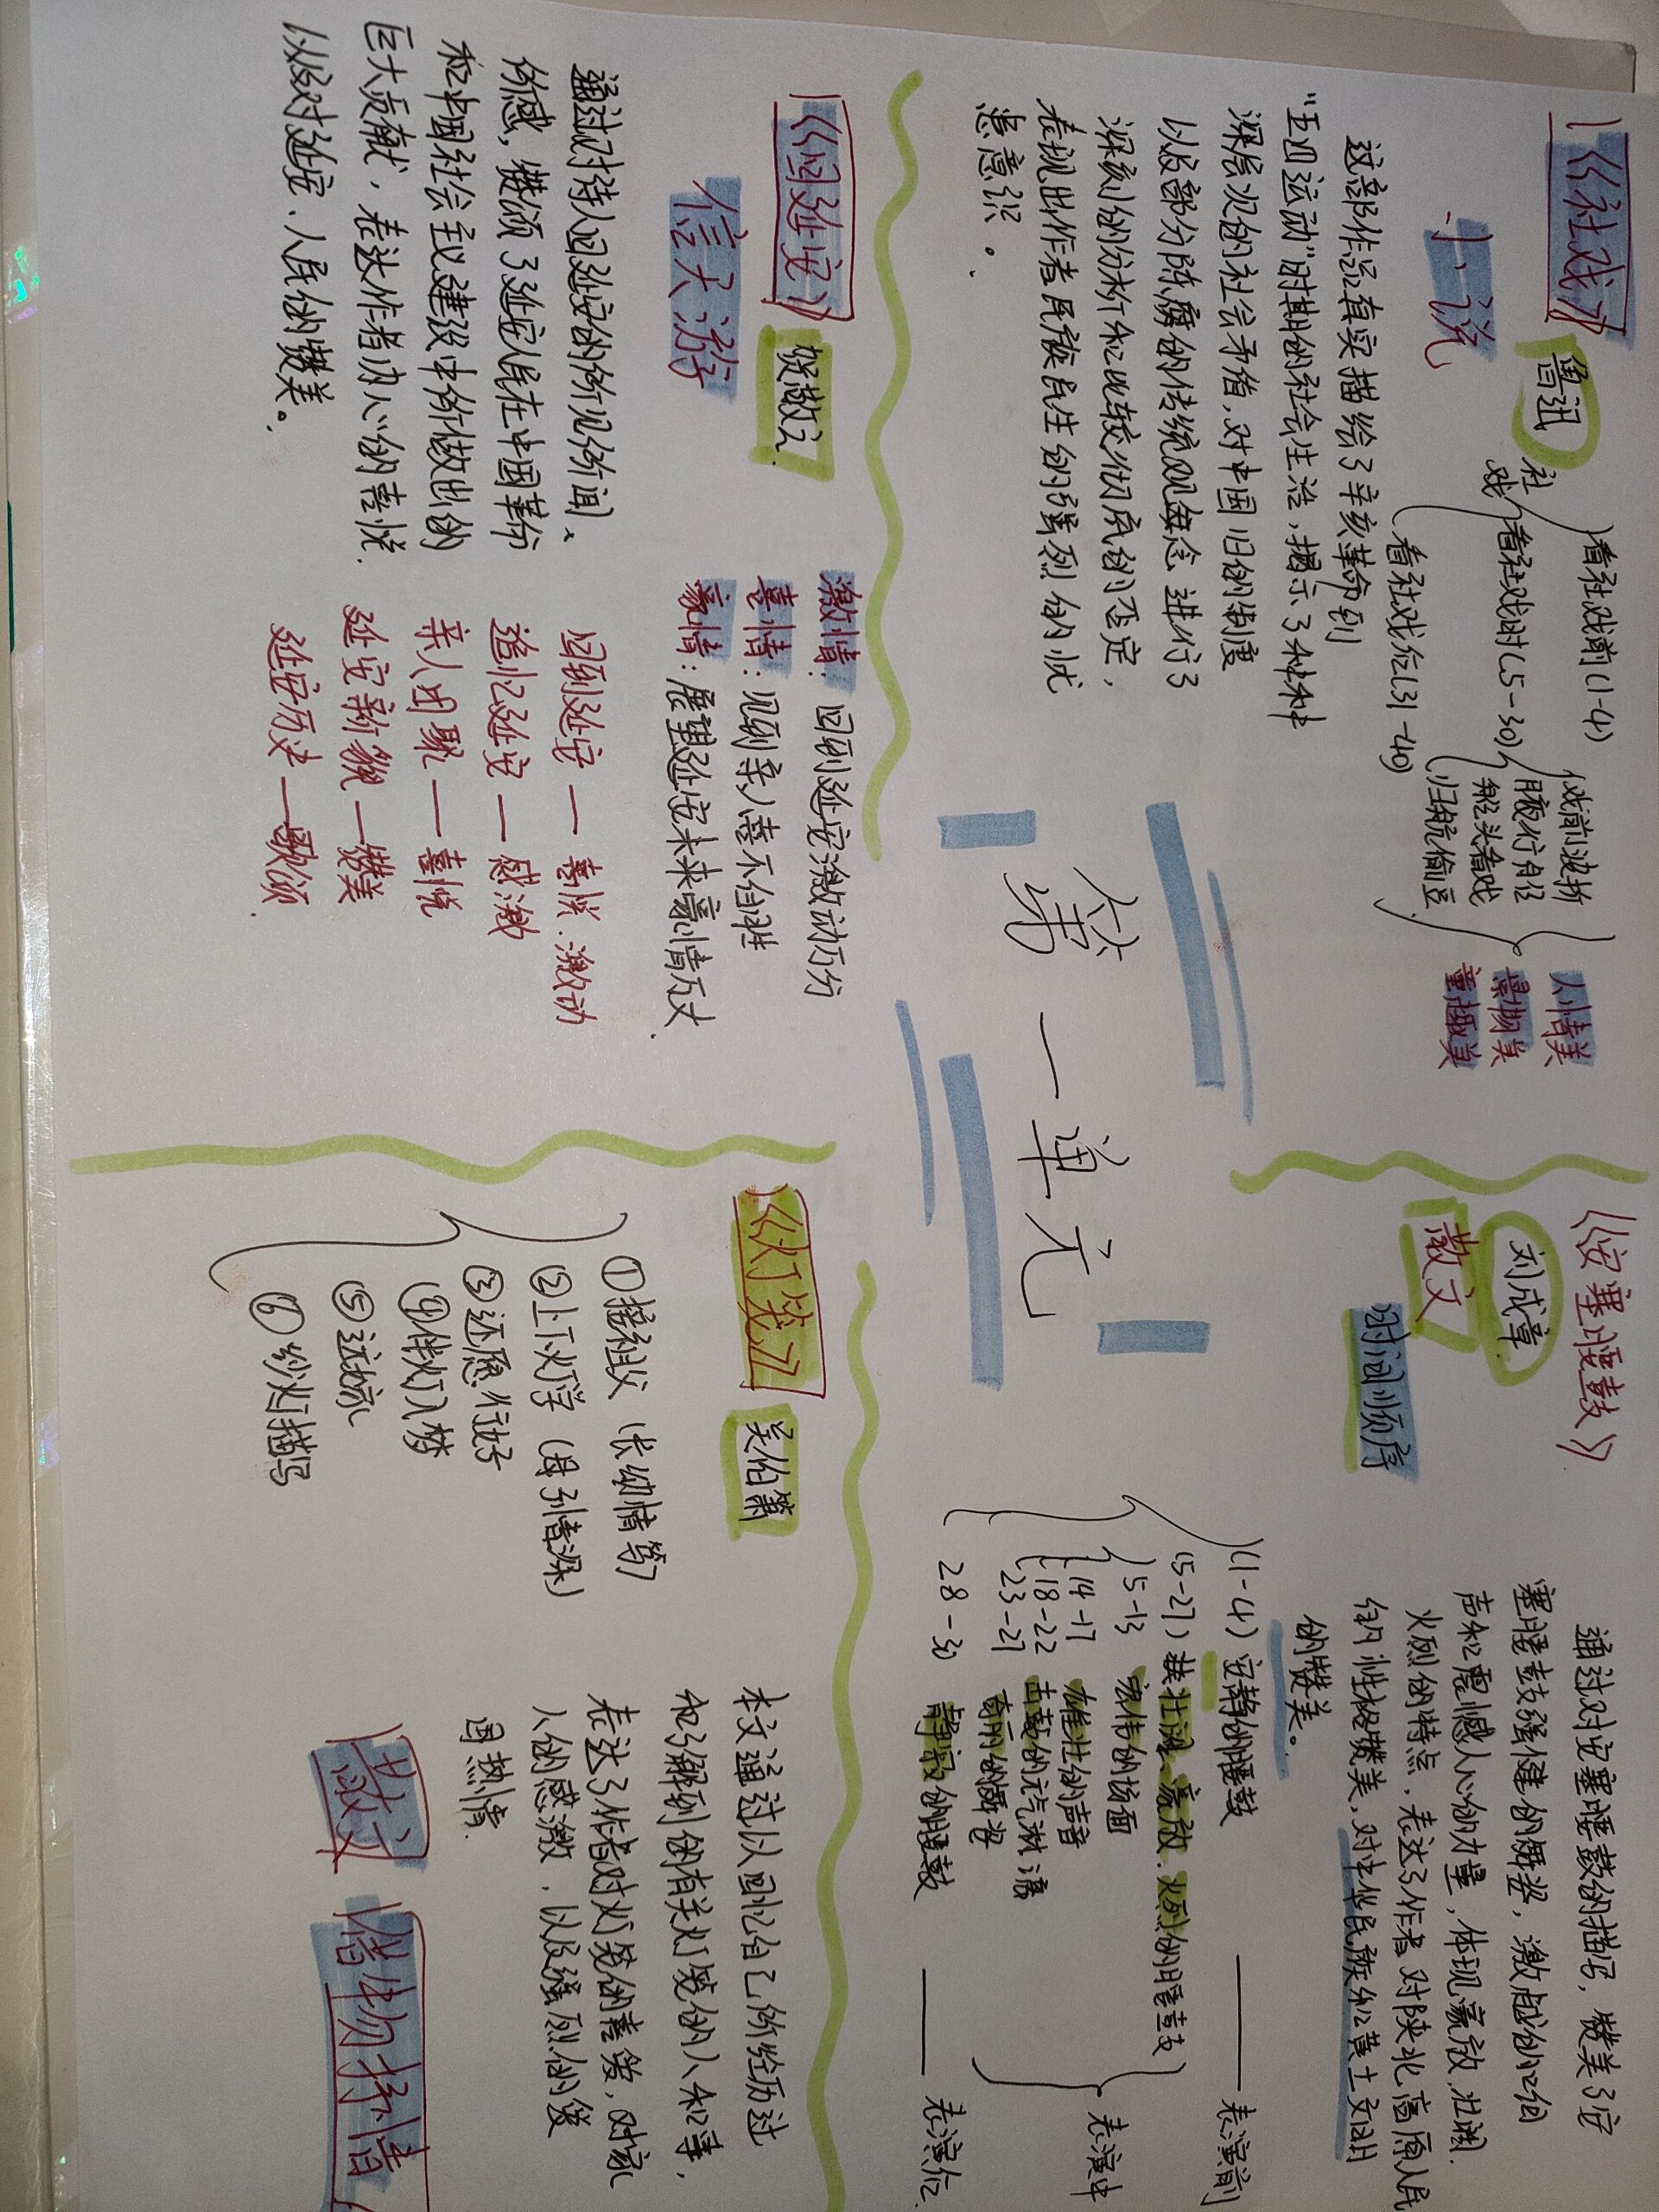 《社戏》
鲁迅
小说
社戏
看社戏前(1-4)
看社戏时(5-30)
看社戏后(31-40)
戏前波折
月夜行船
船头看戏
归航偷豆
人情美
景物美
童趣美
这部作品真实描绘了辛亥革命到
“五四运动”时期的社会生活,揭示了种种
深层次的社会矛盾,对中国旧的制度
以及部分陈腐的传统观念进行了
深刻的分析和比较彻底的否定,
表现出作者民族民生的强烈的忧
患意识。
《安塞腰鼓》
刘成章
散文
时间顺序
通过对安塞腰鼓的描写,赞美了安
塞腰鼓强健的舞姿,激越的
声和震憾人心的力量,体现豪放.壮阔.
火烈的特点,表达了作者对陕北高原人民
的性格赞美,对中华民族和黄土文明
的赞美。
(1-4)安静的腰鼓——表演前
(5-27)壮阔、豪放.火烈的腰鼓
5-13 宏伟的场面
14-17 雄壮的声音
18-22 击鼓的元气淋漓
23-27 奇丽的舞姿
表演中
28-30 静寂的腰鼓——表演后
第一单元
《回延安》
贺敬之
信天游
激情:回到延安激动万分
喜情:见到亲人喜不自胜
豪情:展望延安未来豪情万丈.
通过对诗人回延安的所见所闻、
所感,赞颂了延安人民在中国革命
和中国社会主义建设中所做出的
巨大贡献,表达作者内心的喜悦.
以及对延安、人民的赞美。
回到延安—喜悦.激动
追忆延安—感激
亲人团聚—喜悦
延安新貌—赞美
延安历史—歌颂.
《灯笼》
吴伯箫
①接祖父(长幼情笃)
②上下灯学(母子情深)
③还愿行好
④伴灯入梦
⑤远嫁
⑥纱灯描写
本文通过以回忆自己所经历过
和了解到的有关灯笼的人和事,
表达了作者对灯笼的喜爱,对家
人的感激,以及强烈的爱
国热情.
散文
借物抒情